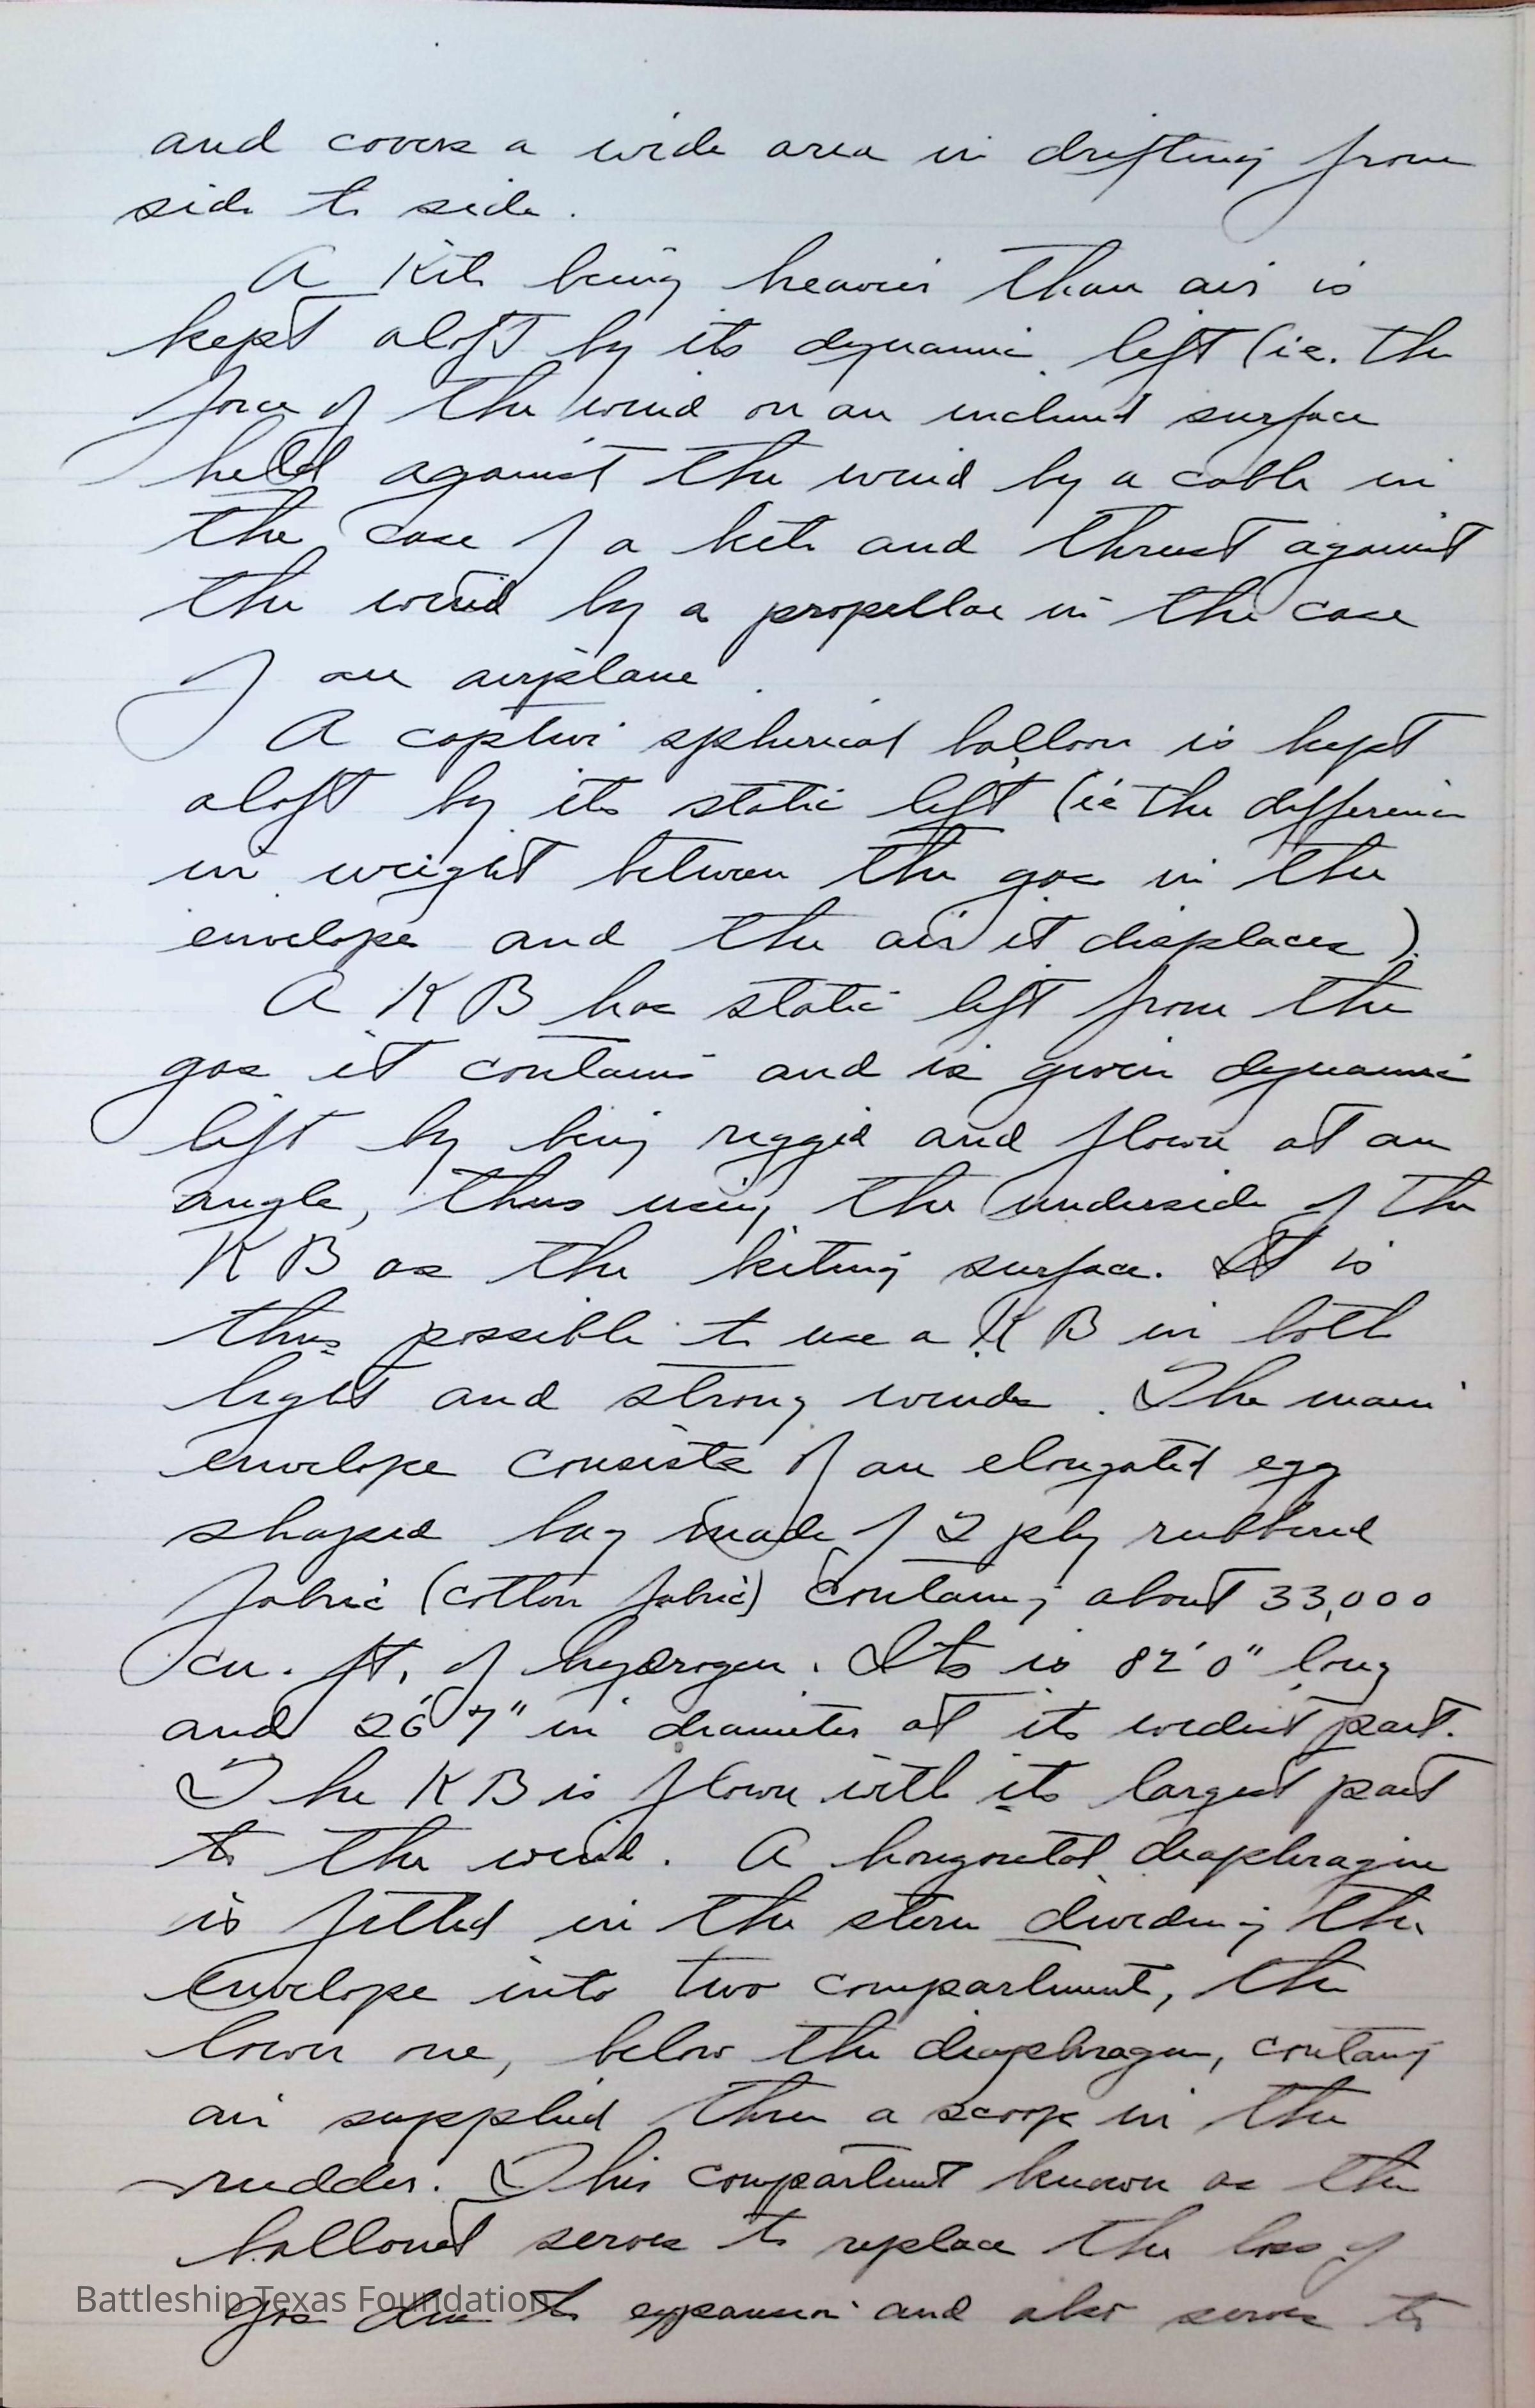 and covers a wide area in drifting from
side to side.
A Kite being heavier than air is
kept aloft by its dynamic lift (ie. the
force of the wind on an inclined surface
held against the wind by a cable in
the case of a kite and thrust against
the wind by a propellor in the case
of an airplane.
A captive spherical balloon is kept
aloft by its static lift (ie the difference
in weight between the gas in the
envelope and the air it displaces).
A KB has static lift from the
gas it contains and is given dynamic
lift by being rigged and flown at an
angle, thus using the underside of the
KB as the kiting surface. It is
thus possible to use a KB in both
light and strong winds. The main
envelope consists of an elongated egg
shaped bag made of 2 ply rubbered
fabric (cotton fabric) containing about 33,000
cu. ft. of hydrogen. Its is 82'0" long
and 26'7" in diameter at its widest part.
The KB is flown with its largest part
to the wind. A horizontal diaphragm
is fitted in the stern dividing the
envelope into two compartment, the
lower one, below the diaphragm, containg
air supplied thru a scoop in the
rudder. This compartment known as the
ballonet serves to replace the loss of
gas due to expansion and also serves to
Battleship Texas Foundation